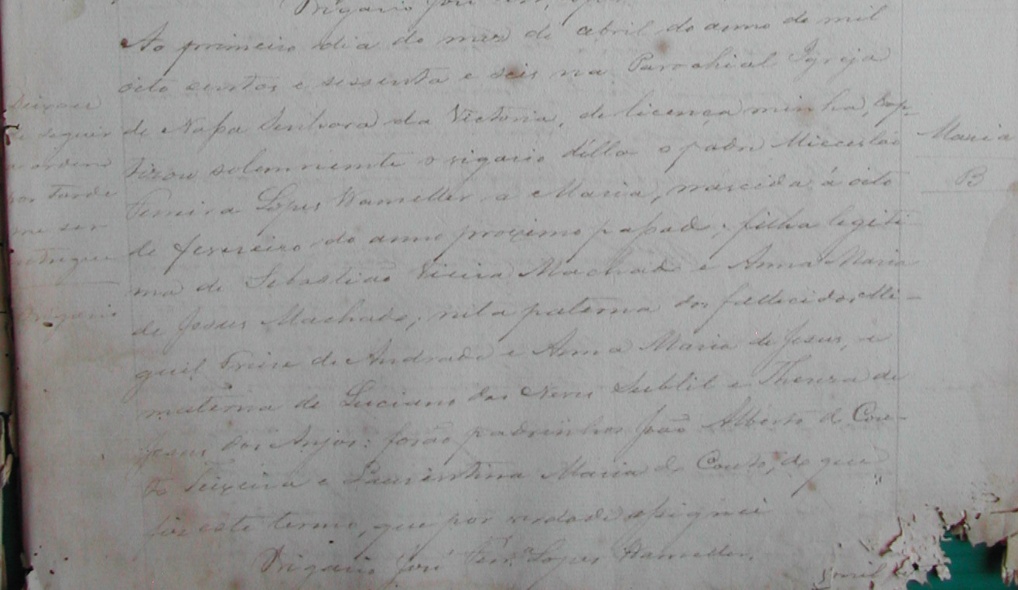 Vigario José
Ao primeiro dia do mez de abril do anno de mil
oito centos e sessenta e seis na Parochial Igreja
de Nossa Senhora da Victoria, de licença minha, bap-
tizou solemnemente o vigario o padre
Ferreira Lopes Wanzeller a Maria, nascida á oito
de fevereiro do anno proximo passado; filha legiti-
ma de Sebastião Vieira Machado e Anna Maria
de Jesus Machado; neta paterna dos fallecidos Mi-
guel de Andrade e Anna Maria de Jesus, e
materna de Luciano das Neves Subtil e Thereza de
Jesus dos Anjos: forão padrinhos João Alberto do Cou-
to Teixeira e Laurentina Maria do Couto, do que
fiz este termo, que por verdade assignei
Vigario José Ferrª Lopes Wanzeller.
Maria
B
Deixou
seguir
ordem
por tarde
me ser
entregue
Vigario